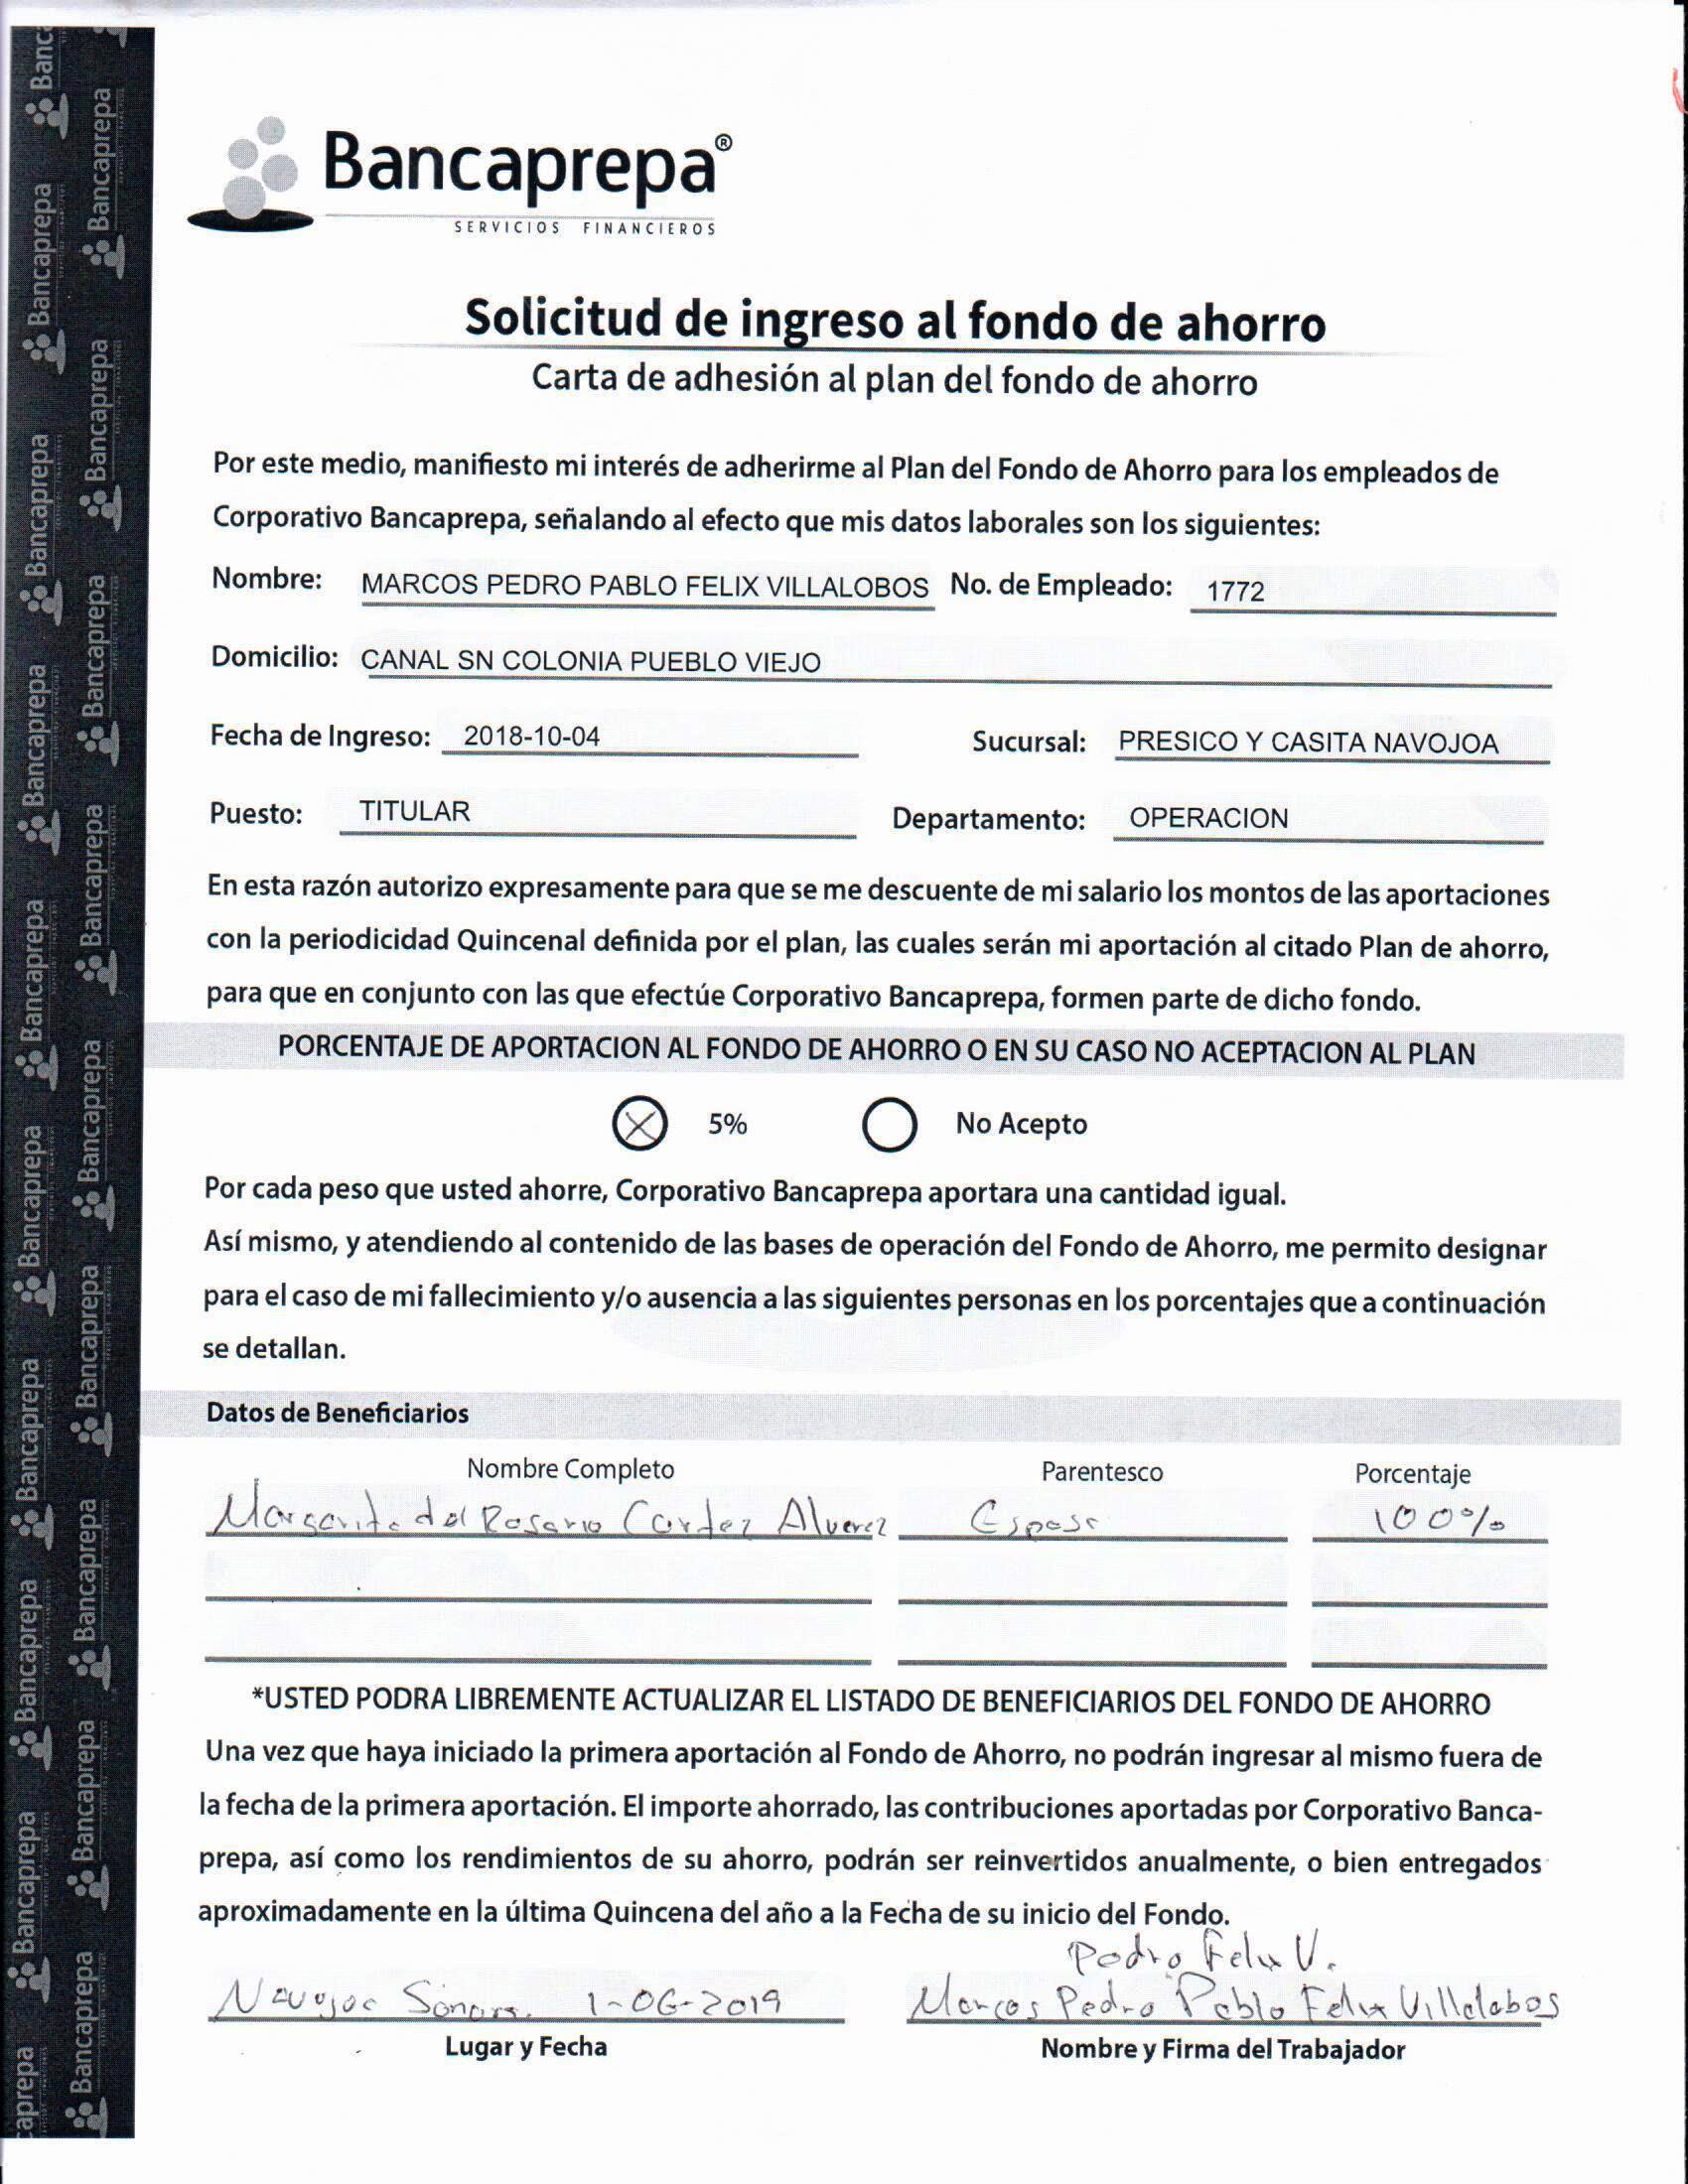 Bancaprepa®
SERVICIOS FINANCIEROS
Solicitud de ingreso al fondo de ahorro
Carta de adhesión al plan del fondo de ahorro
Por este medio, manifiesto mi interés de adherirme al Plan del Fondo de Ahorro para los empleados de
Corporativo Bancaprepa, señalando al efecto que mis datos laborales son los siguientes:
Nombre: MARCOS PEDRO PABLO FELIX VILLALOBOS No. de Empleado: 1772
Domicilio: CANAL SN COLONIA PUEBLO VIEJO
Fecha de Ingreso: 2018-10-04 Sucursal: PRESICO Y CASITA NAVOJOA
Puesto: TITULAR Departamento: OPERACION
En esta razón autorizo expresamente para que se me descuente de mi salario los montos de las aportaciones
con la periodicidad Quincenal definida por el plan, las cuales serán mi aportación al citado Plan de ahorro,
para que en conjunto con las que efectúe Corporativo Bancaprepa, formen parte de dicho fondo.
PORCENTAJE DE APORTACION AL FONDO DE AHORRO O EN SU CASO NO ACEPTACION AL PLAN
5% No Acepto
Por cada peso que usted ahorre, Corporativo Bancaprepa aportara una cantidad igual.
Así mismo, y atendiendo al contenido de las bases de operación del Fondo de Ahorro, me permito designar
para el caso de mi fallecimiento y/o ausencia a las siguientes personas en los porcentajes que a continuación
se detallan.
Datos de Beneficiarios
Nombre Completo Parentesco Porcentaje
Margarita del Rosario Cortez Alvarez Esposa 100%
*USTED PODRA LIBREMENTE ACTUALIZAR EL LISTADO DE BENEFICIARIOS DEL FONDO DE AHORRO
Una vez que haya iniciado la primera aportación al Fondo de Ahorro, no podrán ingresar al mismo fuera de
la fecha de la primera aportación. El importe ahorrado, las contribuciones aportadas por Corporativo Banca-
prepa, así como los rendimientos de su ahorro, podrán ser reinvertidos anualmente, o bien entregados
aproximadamente en la última Quincena del año a la Fecha de su inicio del Fondo.
Pedro Felix V.
Navojoa Sonora. 1-06-2019 Marcos Pedro Pablo Felix Villalobos
Lugar y Fecha Nombre y Firma del Trabajador